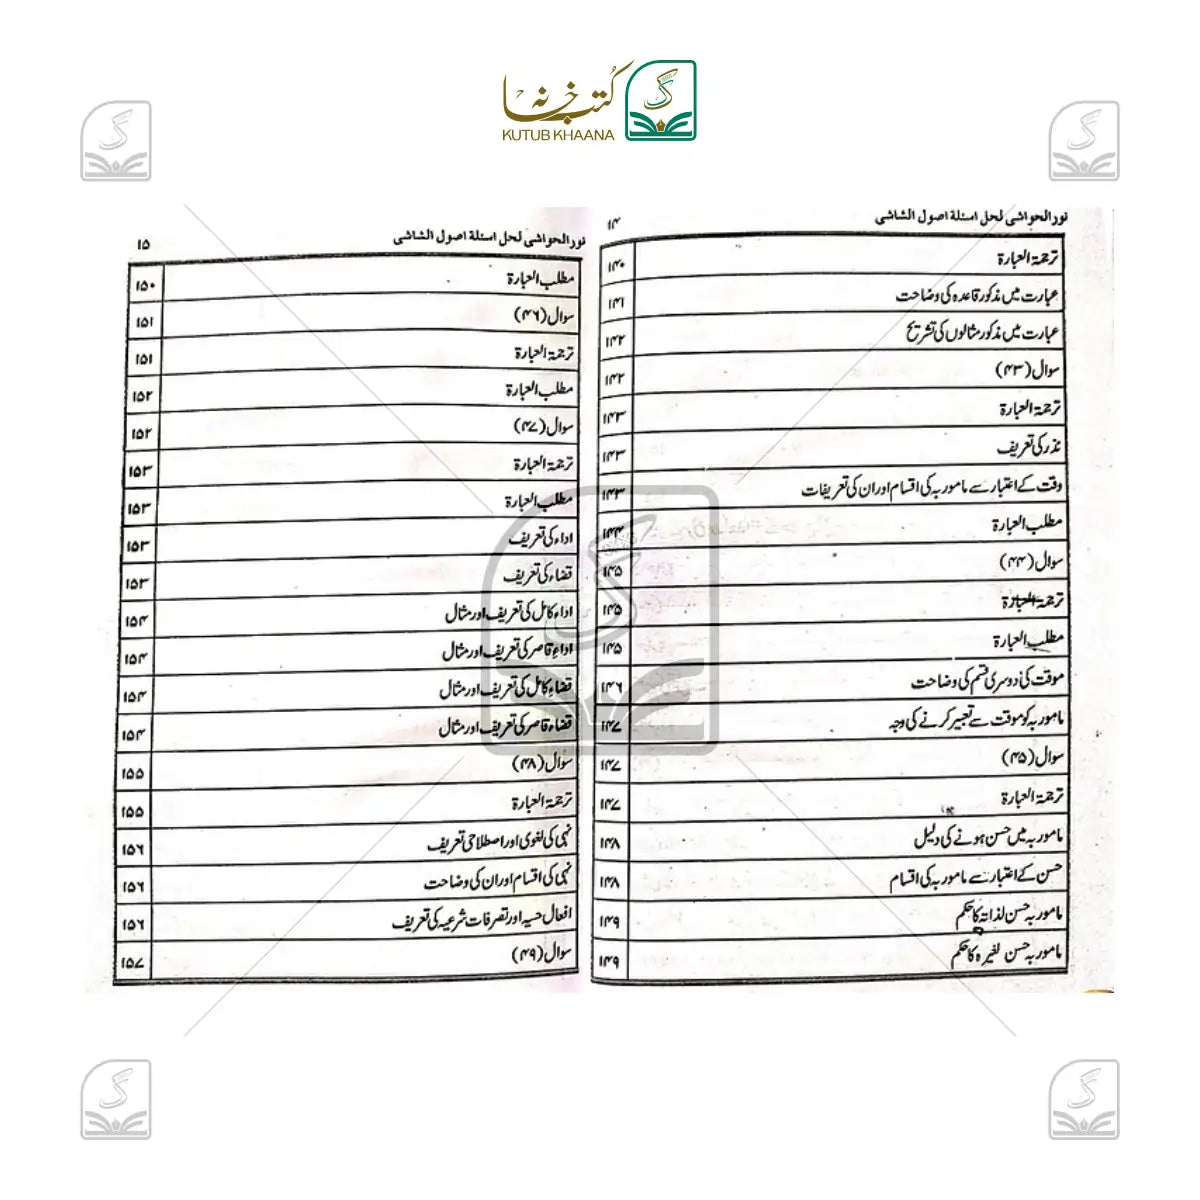 کتب خانہ
KUTUB KHAANA
نور الحواشی لحل اسئلة اصول الشاشی ۱۴
ترجمۃ العبارۃ ۱۴۰
عبارت میں مذکور قاعدہ کی وضاحت ۱۴۱
عبارت میں مذکور مثالوں کی تشریح ۱۴۲
سوال (۴۳) ۱۴۲
ترجمۃ العبارۃ ۱۴۳
نذر کی تعریف ۱۴۳
وقت کے اعتبار سے مامور بہ کی اقسام اور ان کی تعریفات ۱۴۳
مطلب العبارۃ ۱۴۴
سوال (۴۴) ۱۴۵
ترجمۃ العبارۃ ۱۴۵
مطلب العبارۃ ۱۴۵
موقت کی دوسری قسم کی وضاحت ۱۴۶
مامور بہ کو موقت سے تعبیر کرنے کی وجہ ۱۴۷
سوال (۴۵) ۱۴۷
ترجمۃ العبارۃ ۱۴۷
مامور بہ میں حسن ہونے کی دلیل ۱۴۸
حسن کے اعتبار سے مامور بہ کی اقسام ۱۴۸
مامور بہ حسن لذاتہ کا حکم ۱۴۹
مامور بہ حسن لغیرہ کا حکم ۱۴۹
نور الحواشی لحل اسئلة اصول الشاشی ۱۵
مطلب العبارۃ ۱۵۰
سوال (۴۶) ۱۵۱
ترجمۃ العبارۃ ۱۵۱
مطلب العبارۃ ۱۵۲
سوال (۴۷) ۱۵۲
ترجمۃ العبارۃ ۱۵۳
مطلب العبارۃ ۱۵۳
اداء کی تعریف ۱۵۳
قضاء کی تعریف ۱۵۳
اداء کامل کی تعریف اور مثال ۱۵۴
اداءِ قاصر کی تعریف اور مثال ۱۵۴
قضاءِ کامل کی تعریف اور مثال ۱۵۴
قضاء قاصر کی تعریف اور مثال ۱۵۴
سوال (۴۸) ۱۵۵
ترجمۃ العبارۃ ۱۵۵
نہی کی لغوی اور اصطلاحی تعریف ۱۵۶
نہی کی اقسام اور ان کی وضاحت ۱۵۶
افعال حسیہ اور تصرفات شرعیہ کی تعریف ۱۵۶
سوال (۴۹) ۱۵۷